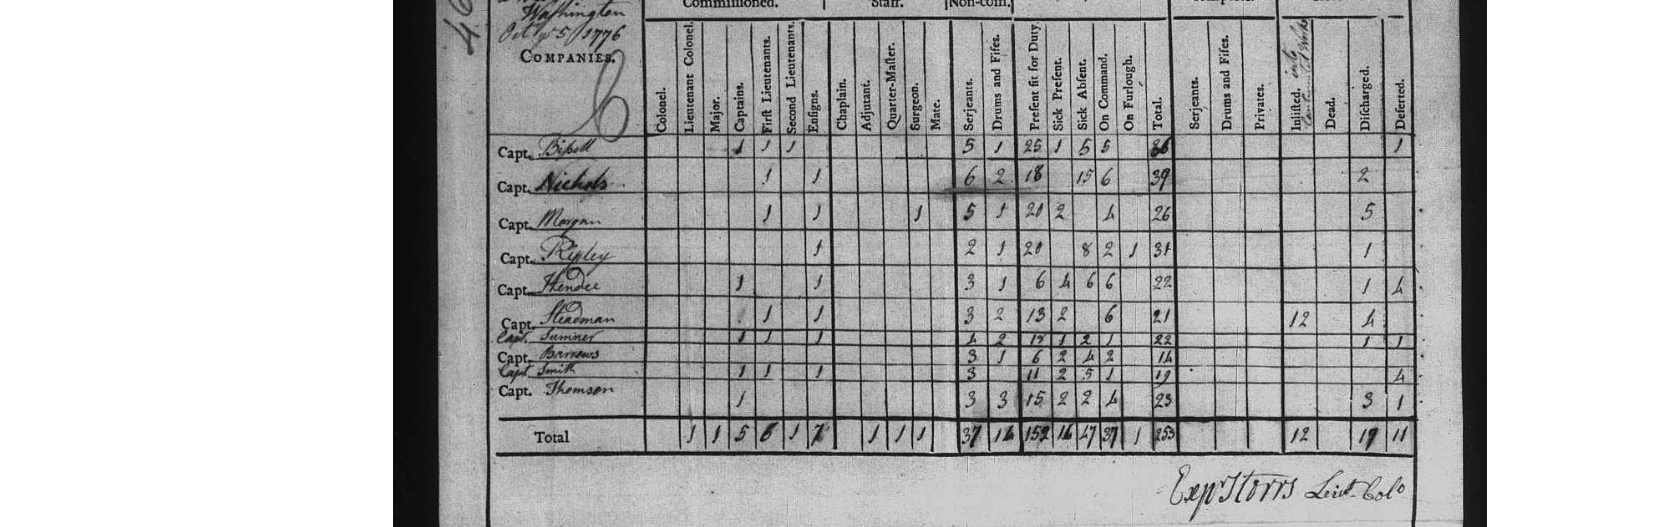 Washington
Octr 5 1776
Commissioned. Staff. Non-com.
COMPANIES.
Colonel. Lieutenant Colonel. Major. Captains. First Lieutenants. Second Lieutenants. Ensigns. Chaplain. Adjutant. Quarter-Master. Surgeon. Mate. Serjeants. Drums and Fifes. Present fit for Duty. Sick Present. Sick Absent. On Command. On Furlough. Total. Serjeants. Drums and Fifes. Privates. Inlisted. into Dead. Discharged. Deserted.
Capt. Bissell 1 1 1 5 1 25 1 5 5 36 1
Capt. Nichols 1 1 6 2 18 15 6 39 2
Capt. Morgan 1 1 1 5 1 20 2 4 26 5
Capt. Ripley 1 2 1 20 8 2 1 31 1
Capt. Hendee 1 1 3 1 6 4 6 6 22 1 4
Capt. Steadman 1 1 3 2 13 2 6 21 12 4
Capt. Sumner 1 1 1 4 2 18 1 2 1 22 1 1
Capt. Barrows 3 1 6 2 4 2 14
Capt Smith 1 1 1 3 11 2 5 1 19 4
Capt. Thomson 1 3 3 15 2 2 4 23 3 1
Total 1 1 5 6 1 7 1 1 1 37 14 152 16 47 37 1 253 12 17 11
Expr Storrs Lieut Colo